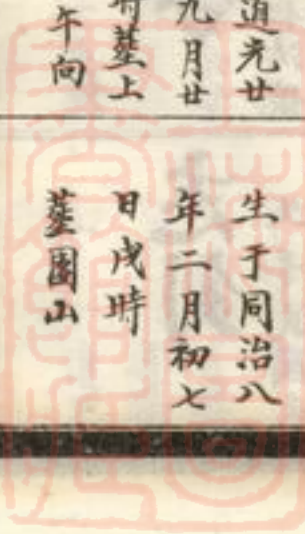 道光廿
九月廿
有塟上
午向
生于同治八
年二月初七
日戌時
塟園山